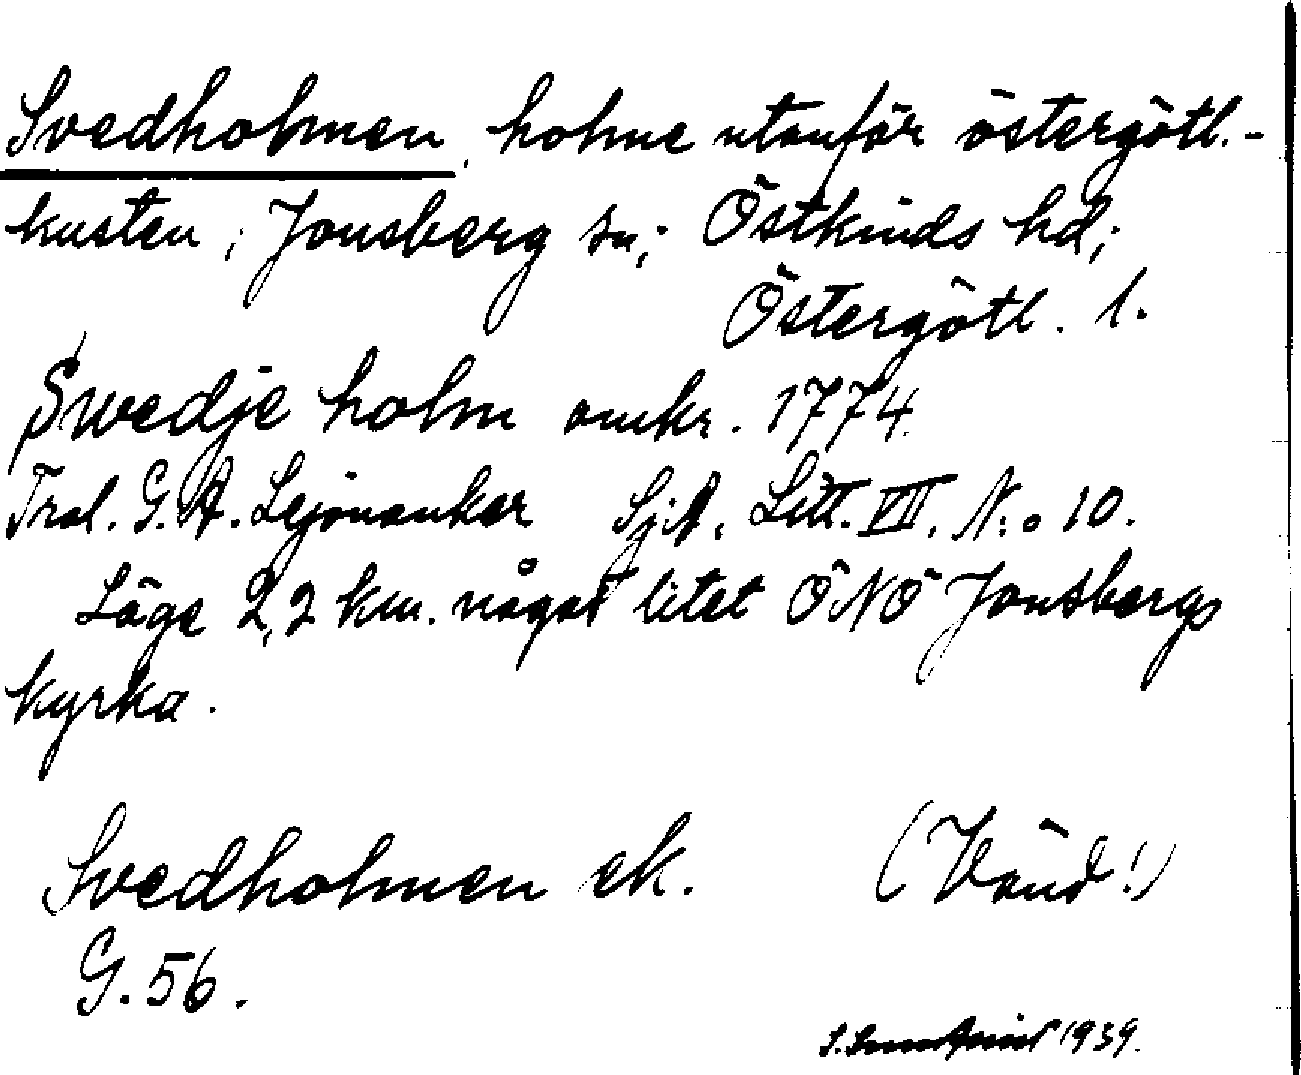 Svedholmen, holme utanför östergötl.-
kusten; Jonsberg sn; Östkinds hd;
Östergötl. l.
Swedje holm omkr. 1774.
Trol. G. A. Lejonankar SjA. Litt. VII. N:o 10.
Läge 2,2 km. något litet ÖNÖ Jonsbergs
kyrka.
Svedholmen ek. (Vänd!)
G. 56.
1939.